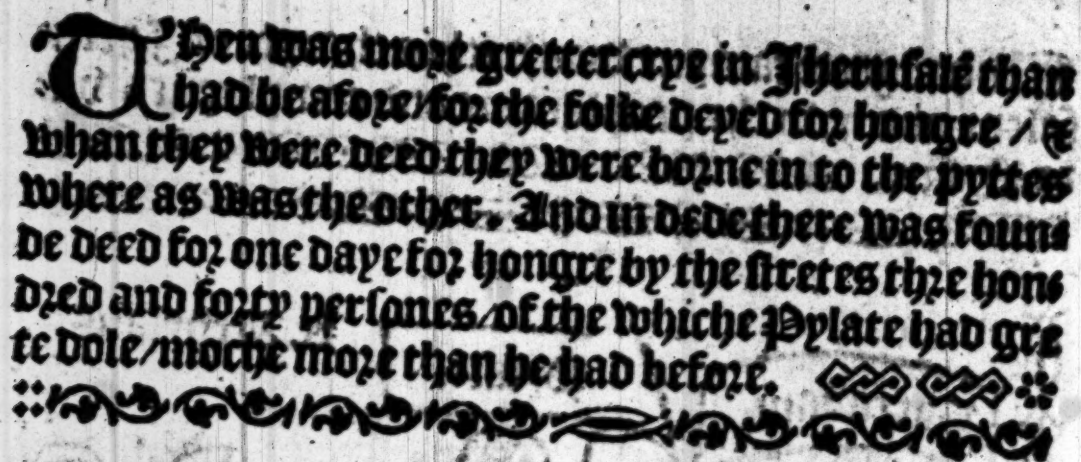 THen was more gretter crye in Jherusalē than
had be afore / for the folke deyed for hongre / &
whan they were deed they were borne in to the pyttes
where as was the other. And in dede there was foun-
de deed for one daye for hongre by the stretes thre hon-
dred and forty persones / of the whiche Pylate had gre
te dole / moche more than he had before.